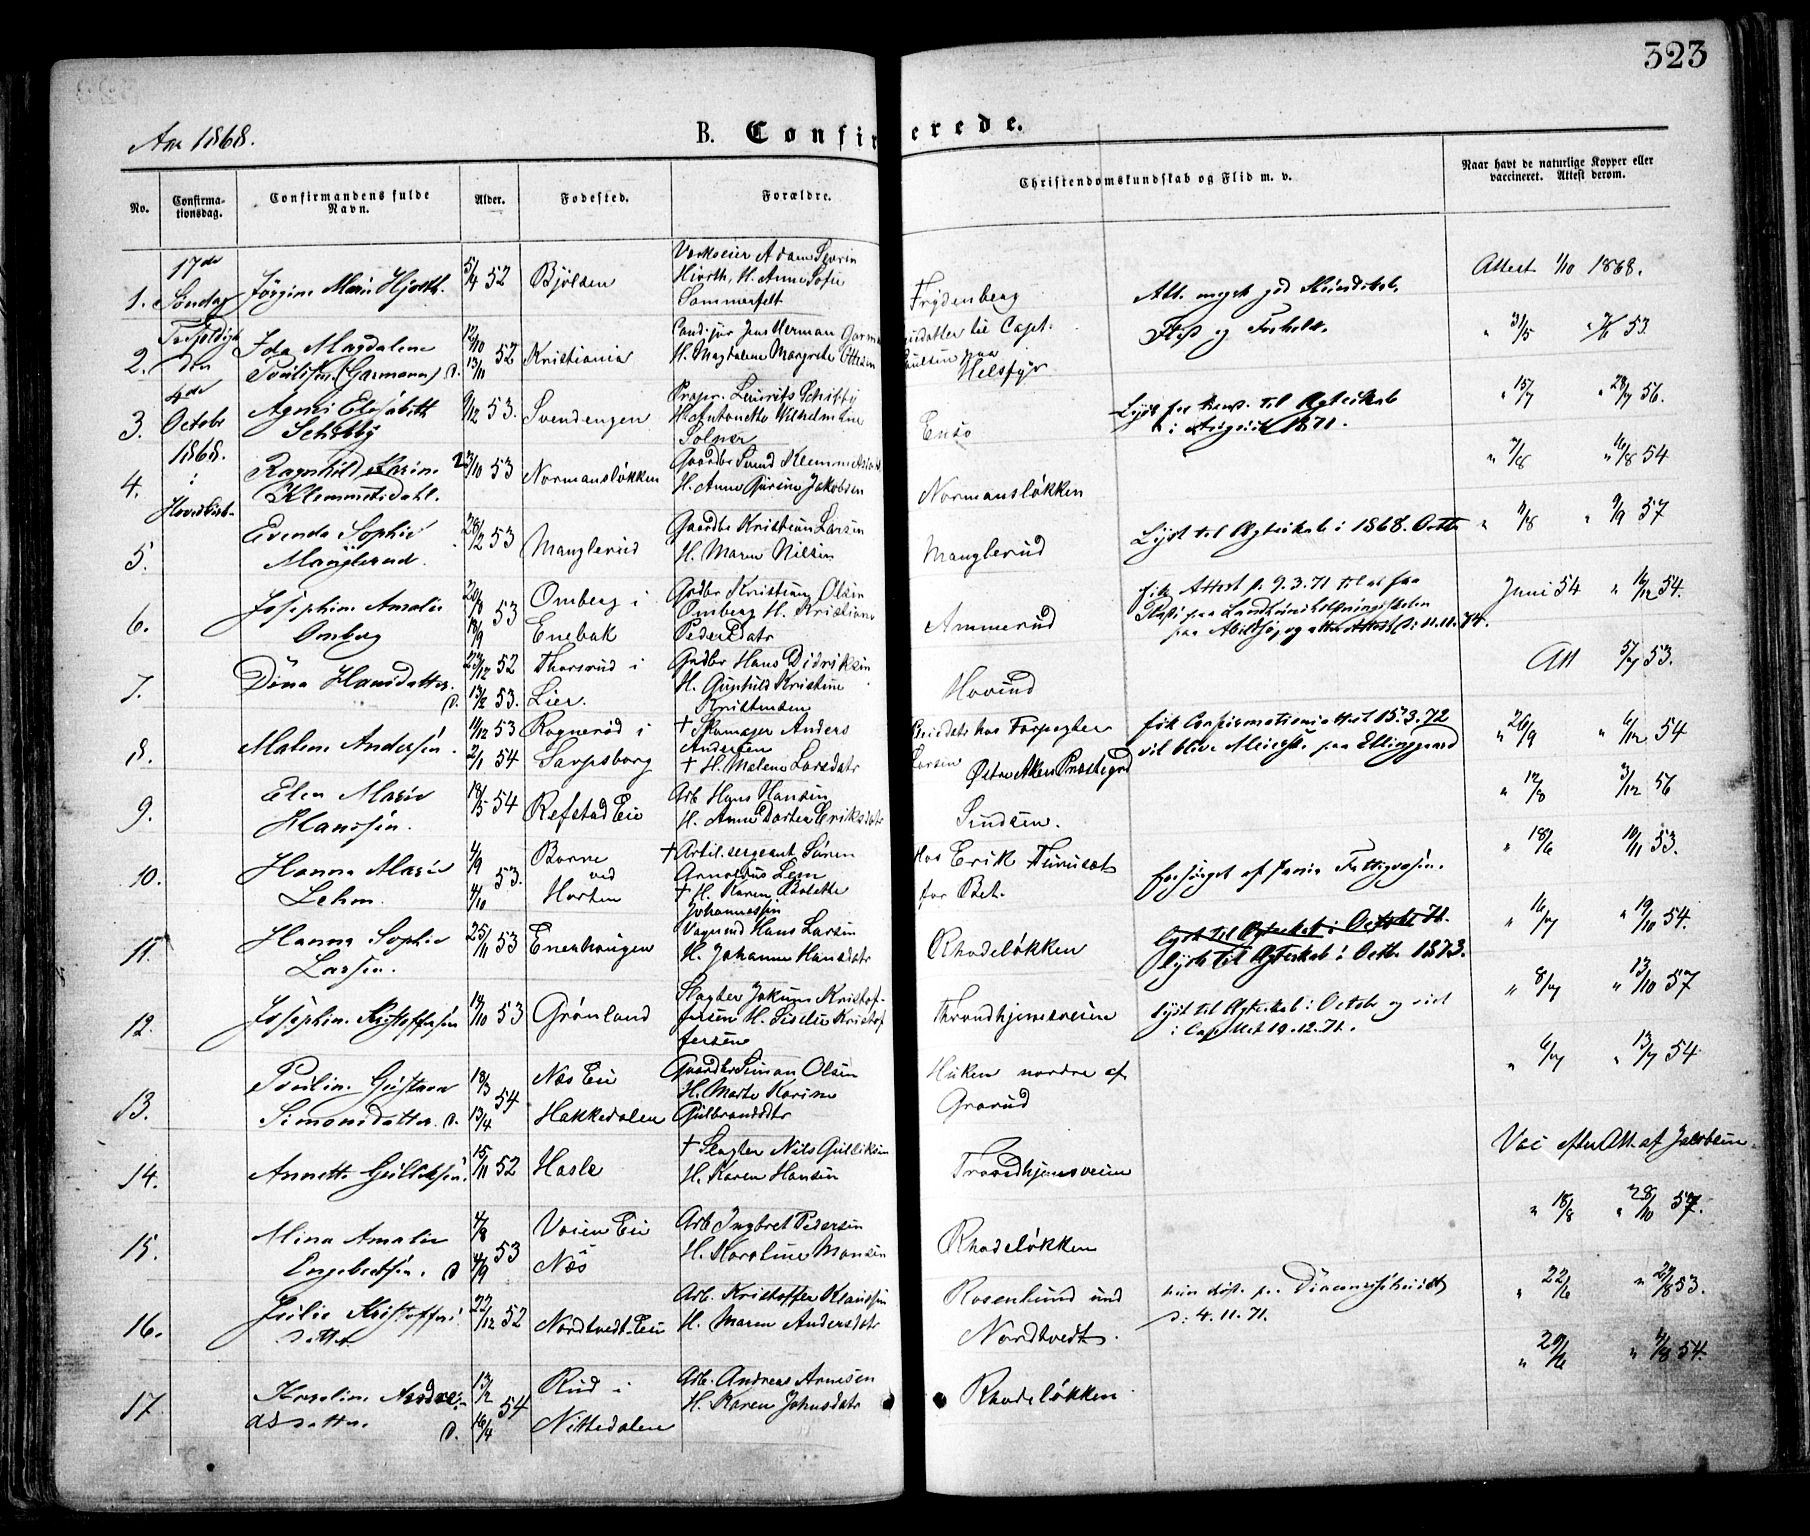 323
Aar 1868.
B. Confirmerede.
No.
Confirma-
tionsdag.
Confirmandens fulde
Navn.
Alder.
Fødested.
Forældre.
Christendomskundskab og Flid m. v.
Naar havt de naturlige Kopper eller
vaccineret. Attest derom.
17de
Søndag
Trefoldigh
den
4de
Octobr
1868.
i
1. Jørgine Marie Hjorth. 5/4 52 Bjølsen
Hiorth, H. Anne Sofie
Sommerfelt
Frydenberg
Attest 1/10 1868.
2. Ida Magdalene
Poulsen (Garmann) d. 12/10 13/11 52 Kristiania
Cand. jur Jens Herman Garman
H. Magdalene Margrete Ottesen
til Capt.
paa
Helsfyr
" 31/5 53.
3. Agnes Elisabeth
Schibby 9/12 53. Svendengen
Propr. Lauritz Schibby
H. Antonette Vilhelmine
Solner
Ensø
Lyst til Ægteskab
i August 1871.
" 15/7 " 23/7 56.
4. Ragnhild Karine
Klemmetsdahl. 23/10 53 Normansløkken
H. Anne Gurine Jakobsen
Normansløkken
" 7/8 " 16/8 54
5. Evenda Sophie
Manglerud. 28/2 53 Manglerud
Gaardbr Kristian Larsen
H. Maren Nilsen
Manglerud
Lyst til Ægteskab i 1868. Octbr
" 11/8 " 9/9 57
6. Josephine Amalie
Omberg 53 Omberg i
Enebak
Grdbr Kristian Olsen
Omberg H. Kristiane
Pedersdatr
Ammerud
fik Attest p. 9.3.71
11.11.74.
Juni 54 " 16/12 54.
7. Dina Hansdatter. d. 23/12 52
13/2 53. Thorsrud i
Lier.
Grdbr Hans Didriksen
H. Gunhild Kristine
Kristensen
Hovind
Att 5/7 53.
8. Malene Andersen. 11/12 53
2/1 54 Rognerød i
Sarpsborg
† Skomager Anders
Andersen
† H. Malene Larsdatr
hos Forpagter
Larsen
Østre Aker Præstegrd
fik Confirmationsattest 15.3.72
vil blive Meierske paa Ellinggaard
" 26/9 " 6/12 54
9. Elen Marie
Hanssen. 18/5 54 Refstad Eie
Arb. Hans Hansen
H. Anne Dortea Eriksdatr
Sindsen.
" 12/8 3/12 56
10. Hanna Marie
Lehm. 4/9
4/10 53. Borre
ved
Horten
† Artil. sergeant Søren
Arnoldus Lem
† H. Karen Bolette
Johannessen
Hos Erik
for Bet.
forsørget af Fattigvæsen.
" 18/6 10/11 53.
11. Hanna Sophie
Larsen. 25/11 53 Enerhaugen
Vognmd Hans Larsen
H. Johanne Hansdatr
Rhodeløkken
Lyst til Ægteskab i Octobr 71.
Lyst til Ægteskab i Octbr 1873.
" 16/7 " 19/10 54.
12. Josephine Kristoffersen 12/10 53 Grønland
Slagter Jakum Kristof-
fersen H. Siselie Kristof
fersen
Throndhjemsveien
Lyst til Ægteskab i Octobr
19.12.71.
" 8/7 " 13/10 57
13. Pouline Gustava
Simonsdatter. d. 18/3
13/4 54 Næs Eie
Hakkedalen
Gaardbr Simon Olsen
H. Marte Karine
Gulbrandsdtr
Huken nordre af
Grorud
" 6/7 " 13/7 54
14. Annette Gulliksen 15/11 52 Hasle
† Slagter Nils Gulliksen
H. Karen Hansen
Trondhjemsveien
Vac efter Att. af Jacobsen.
15. Mina Amalie
Engebretsen. d 4/8
4/9 53 Voien Eie
Næs
Arb. Ingbret Pedersen
H. Karoline Monsen
Rhodeløkken
" 18/8 " 28/10 57.
16. Julie Kristoffers
datter 22/12 52 Nordtvedt-Eie
Arb. Kristoffer Klaussen
H. Maren Andersdatr
Rosenlund und
Nordtvedt.
d: 4.11.71.
" 22/6 " 29/8 53.
17. Karoline Andre-
asdatter d. 13/2
16/4 54 Rud i
Nittedalen
Arb. Andreas Arnesen
H. Karen Johnsdatr
Rhodeløkken
" 29/6 " 4/8 54.